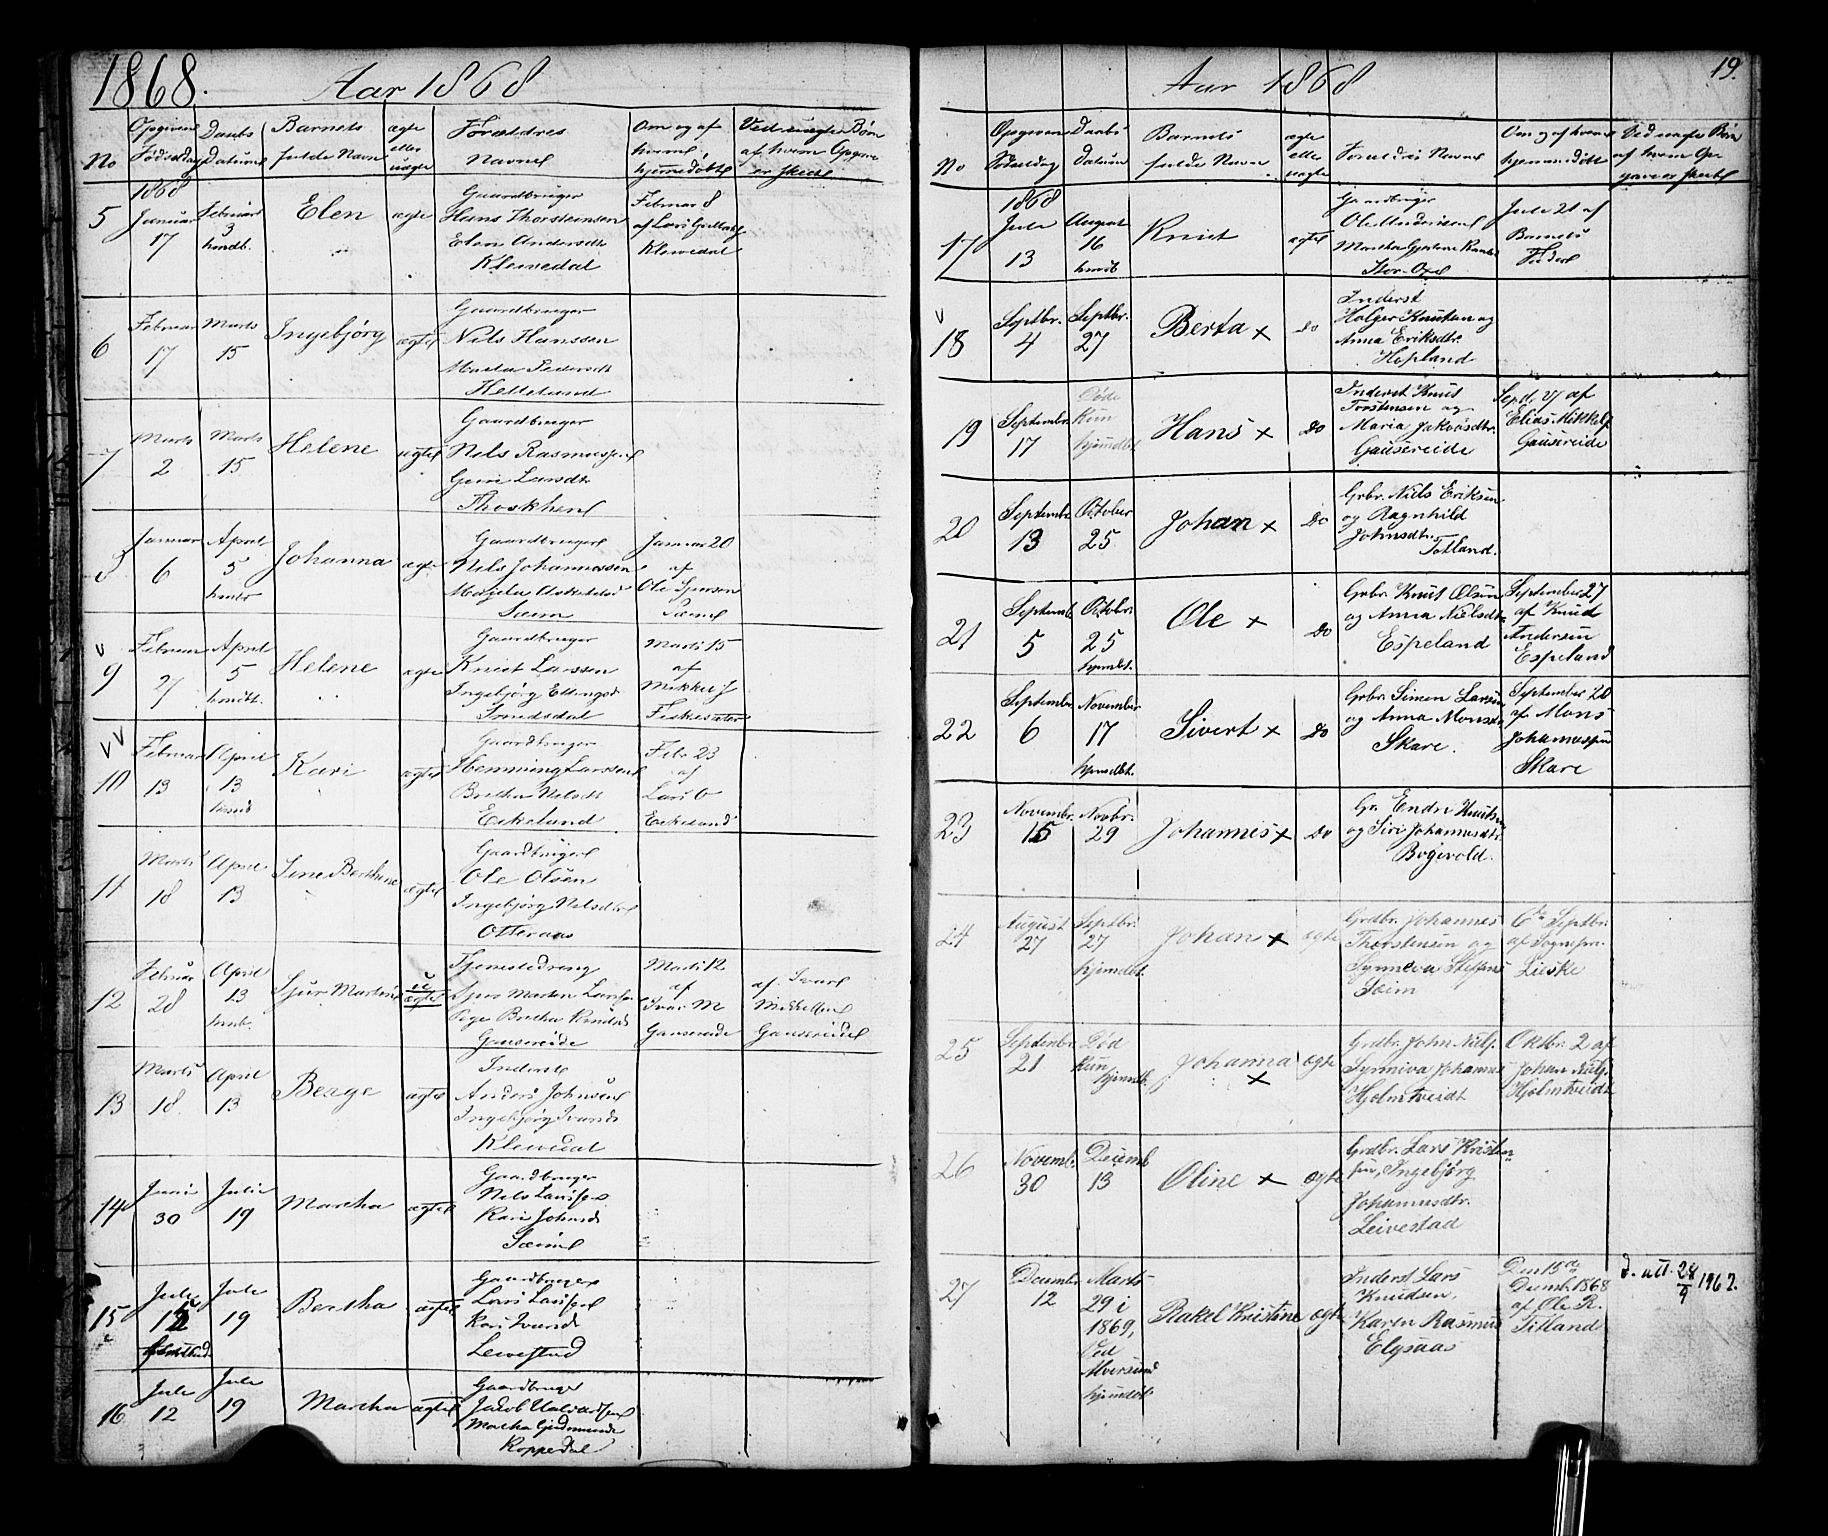 1868. Aar 1868
No
Opgiven Fødselsdag
Daabs Datum
Barnets fulde Navn
ægte eller uægte
Forældres Navne
Om og af hvem hjemmedøbt
Ved uægte Børn af hvem Opgave er skeet
1868
5
Januar 17
Februar 3
Elen
ægte
Gaardbruger
Hans Thorsteinsen
Elen Andersdt
Klevedal
Februar 8
af Lars
Klevedal
6
Februar 17
Marts 15
Ingebjørg
ægte
Gaardbruger
Nils Hanssen
Pedersdt
Helleland
7
Marts 2
Marts 15
Helene
ægte
Gaardbruger
Nels Rasmussen
Larsdt
8
Januar 6
April 5
Johanna
ægte
Gaardbruger
Nils Johannessen
Sæim
Januar 20
af
Ole
v
9
Februar 27
April 5
Helene
ægte
Gaardbruger
Knut Larsen
Ingebjørg
Marts 15
af
Mikkel J
Fiskesæter
v v
10
Februar 13
April 13
Kari
ægte
Gaardbruger
Henning Larssen
Bertha Nelsdt
Eikeland
Febr 23
af
Lars O
Eikeland
11
Marts 18
April 13
Sine Berthine
ægte
Gaardbruger
Ole Olsen
Ingebjørg Nelsdt
Otteraas
12
Februar 28
April 13
Sjur Martin
uægte
Tjenestedreng
Sjur Marten Larsen
Pige Bertha Knudsd
Gausereide
Marts 12
af
Ivar M
Gausereide
af Ivar
Mikkelsen
Gausereide
13
Marts 18
April 13
Berge
ægte
Inderst
Anders Johnsen
Ingebjørg Ivarsd
Klevedal
14
Juni 30
Julie 19
Martha
ægte
Gaardbruger
Nels Larsen
Kari Johnsd
Sæim
15
Julie
Julie 19
Bertha
ægte
Gaardbruger
Lars Larsen
Kari Ivarsd
Levestad
16
Julie 12
Julie 19
Martha
ægte
Gaardbruger
Jakob
Martha
Koppedal
Aar 1868
19.
No
Opgiven Fødselsdag
Daabs Datum
Barnets fulde Navn
ægte eller uægte
Foreldres Navne
Om og af hvem hjemmedøbt
Ved uægte Børn af hvem Opgave er skeet
1868
17
Julie 13
August 16
Knut
ægte
Gaardbruger
Ole Andersen
Martha
Julie 21 af
Barnets
Fader
v
18
Septbr. 4
Septbr. 27
Berta x
Do
Inderst
Holger Knutsen og
Anna Eriksdtr.
Hopland
19
Septembr. 17
Døde
kun
hjemdbt
Hans x
Do
Inderst Knut
Torstensen og
Maria Jakobsdtr.
Gausereide
Septb. 27 af
Elias Mikkels
Gausereide
20
September 13
October 25
Johan x
Do
Grbr. Niels Eriksen
og Ragnhild
Johnsdtr.
Totland.
21
Septemb. 5
Octobr. 25
hjemdbt.
Ole x
Do
Grbr. Knut Olsen
og Anna Nielsdtr
Espeland
September 27
af Knud
Andersen
Espeland
22
Septembr. 6
November 17
hjemdbt.
Sivert x
Do
Grbr. Simen Larsen
og Anna Monsdtr
Skare.
September 20
af Mons
Johannesen
Skare
23
Novembr. 15
Novbr. 29
Johannes x
Do
Gr. Endre Knutsen
og Siri Johannesdtr.
Bogevold.
24
August 27
Septbr. 27
hjemdbt.
Johan x
ægte
Grdbr. Johannes
Thorstensen og
Synneva Steffens
Sæim
6te Septbr.
af Sognepr.
Lieske
25
Septembr. 21
Død
kun
hjemdb.
Johanna
x
ægte
Grdbr. John Nils.
Synniva Johannes
Hjelmtveidt
Oktbr. 2 af
Johan Nils.
Hjelmtveidt
26
Novemb. 30
Decemb 13
Oline x
ægte
Grdbr. Lars Kristen-
sen, Ingebjørg
Johannesdtr.
Leivestad
27
December 12
Marts
29 i
1869,
ved
Alversund
hjemdøbt.
Rakel Kristine
ægte
Inderst Lars
Knudsen,
Karen Rasmus
Elysaas
Den 15de
Decemb. 1868
af Ole R.
Titland
d. att. 28/9 1962.